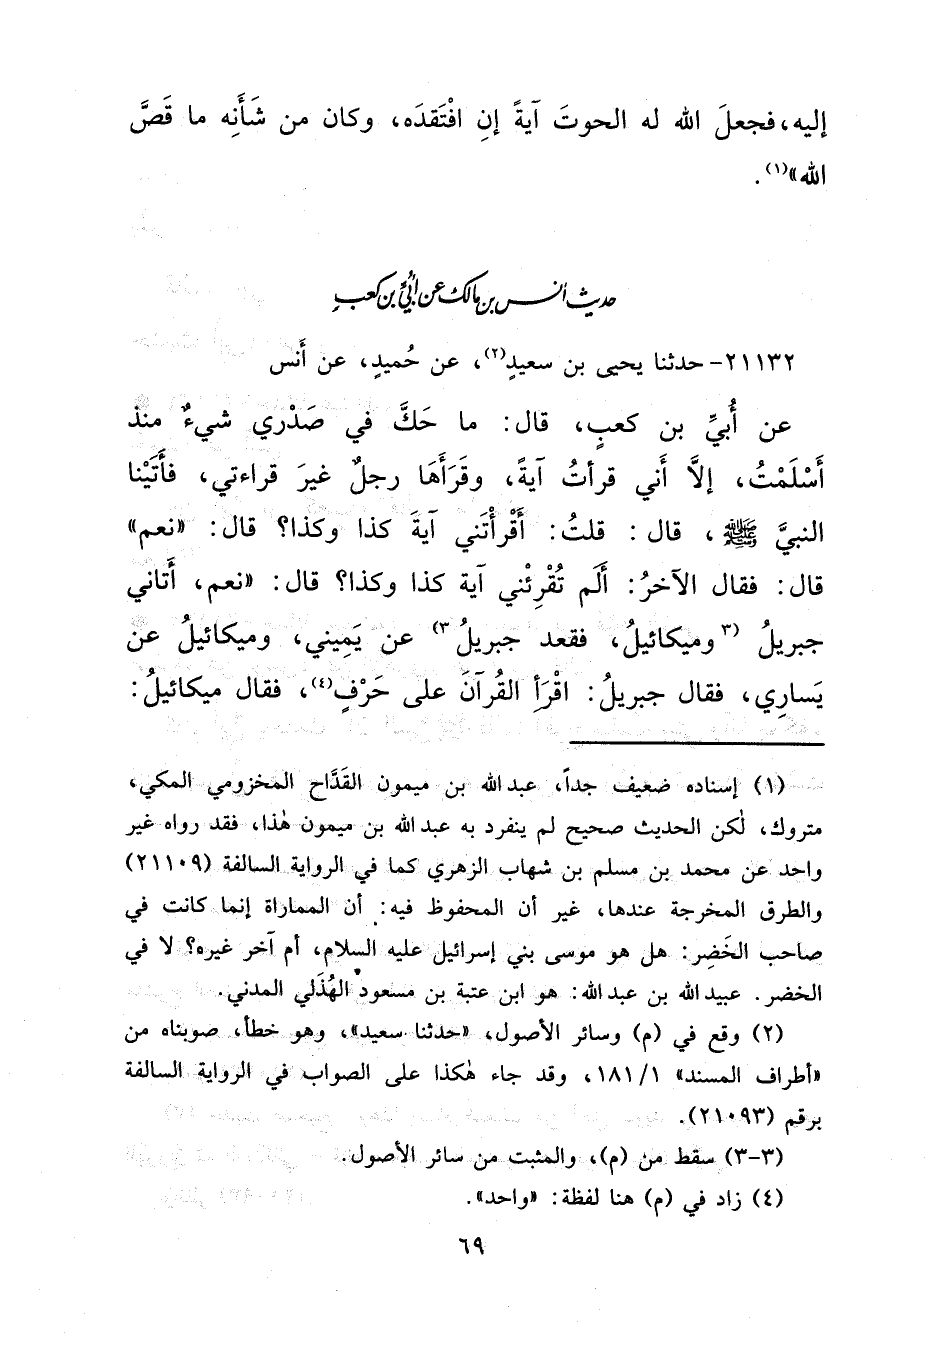 إليه، فجعلَ الله له الحوتَ آيةً إنِ افْتَقدَه، وكان من شَأَنِه ما قَصَّ
الله»(١).
حديث أنس بن مالك عن أُبَيِّ بن كعبٍ
٢١١٣٢- حدثنا يحيى بن سعيدٍ(٢)، عن حُميدٍ، عن أَنس
عن أُبيِّ بن كعبٍ، قال: ما حَكَّ في صَدْري شيءٌ منذ
أَسْلَمْتُ، إلاَّ أَني قرأتُ آيةً، وقَرَأَهَا رجلٌ غيرَ قراءتي، فأَتَيْنا
النبيَّ ﷺ، قال: قلتُ: أَقْرأْتَني آيةَ كذا وكذا؟ قال: «نعم»
قال: فقال الآخرُ: أَلَم تُقْرِئْني آية كذا وكذا؟ قال: «نعم، أَتاني
جبريلُ (٣ وميكائيلُ، فقعد جبريلُ ٣) عن يَمِيني، وميكائيلُ عن
يَسارِي، فقال جبريلُ: اقْرَأِ القُرآنَ على حَرْفٍ(٤)، فقال ميكائيلُ:
(١) إسناده ضعيف جداً، عبدالله بن ميمون القَدَّاح المخزومي المكي،
متروك، لٰكن الحديث صحيح لم ينفرد به عبدالله بن ميمون هٰذا، فقد رواه غير
واحد عن محمد بن مسلم بن شهاب الزهري كما في الرواية السالفة (٢١١٠٩)
والطرق المخرجة عندها، غير أن المحفوظ فيه: أن المماراة إنما كانت في
صاحب الخَضِر: هل هو موسى بني إسرائيل عليه السلام، أم آخر غيره؟ لا في
الخضر. عبيدالله بن عبدالله: هو ابن عتبة بن مسعود الهُذَلي المدني.
(٢) وقع في (م) وسائر الأصول، «حدثنا سعيد»، وهو خطأ، صوبناه من
«أطراف المسند» ١٨١/١، وقد جاء هٰكذا على الصواب في الرواية السالفة
برقم (٢١٠٩٣).
(٣-٣) سقط من (م)، والمثبت من سائر الأصول.
(٤) زاد في (م) هنا لفظة: «واحد».
٦٩